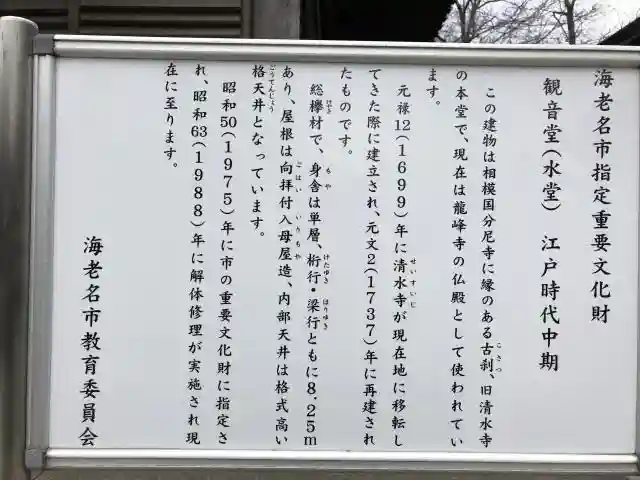 海老名市指定重要文化財
観音堂(水堂) 江戸時代中期
この建物は相模国分尼寺に縁のある古刹、旧清水寺
の本堂で、現在は龍峰寺の仏殿として使われてい
ます。
元禄12(1699)年に清水寺が現在地に移転し
てきた際に建立され、元文2(1737)年に再建され
たものです。
総欅材で、身舎は単層、桁行・梁行ともに8.25m
あり、屋根は向拝付入母屋造、内部天井は格式高い
格天井となっています。
昭和50(1975)年に市の重要文化財に指定さ
れ、昭和63(1988)年に解体修理が実施され現
在に至ります。
海老名市教育委員会